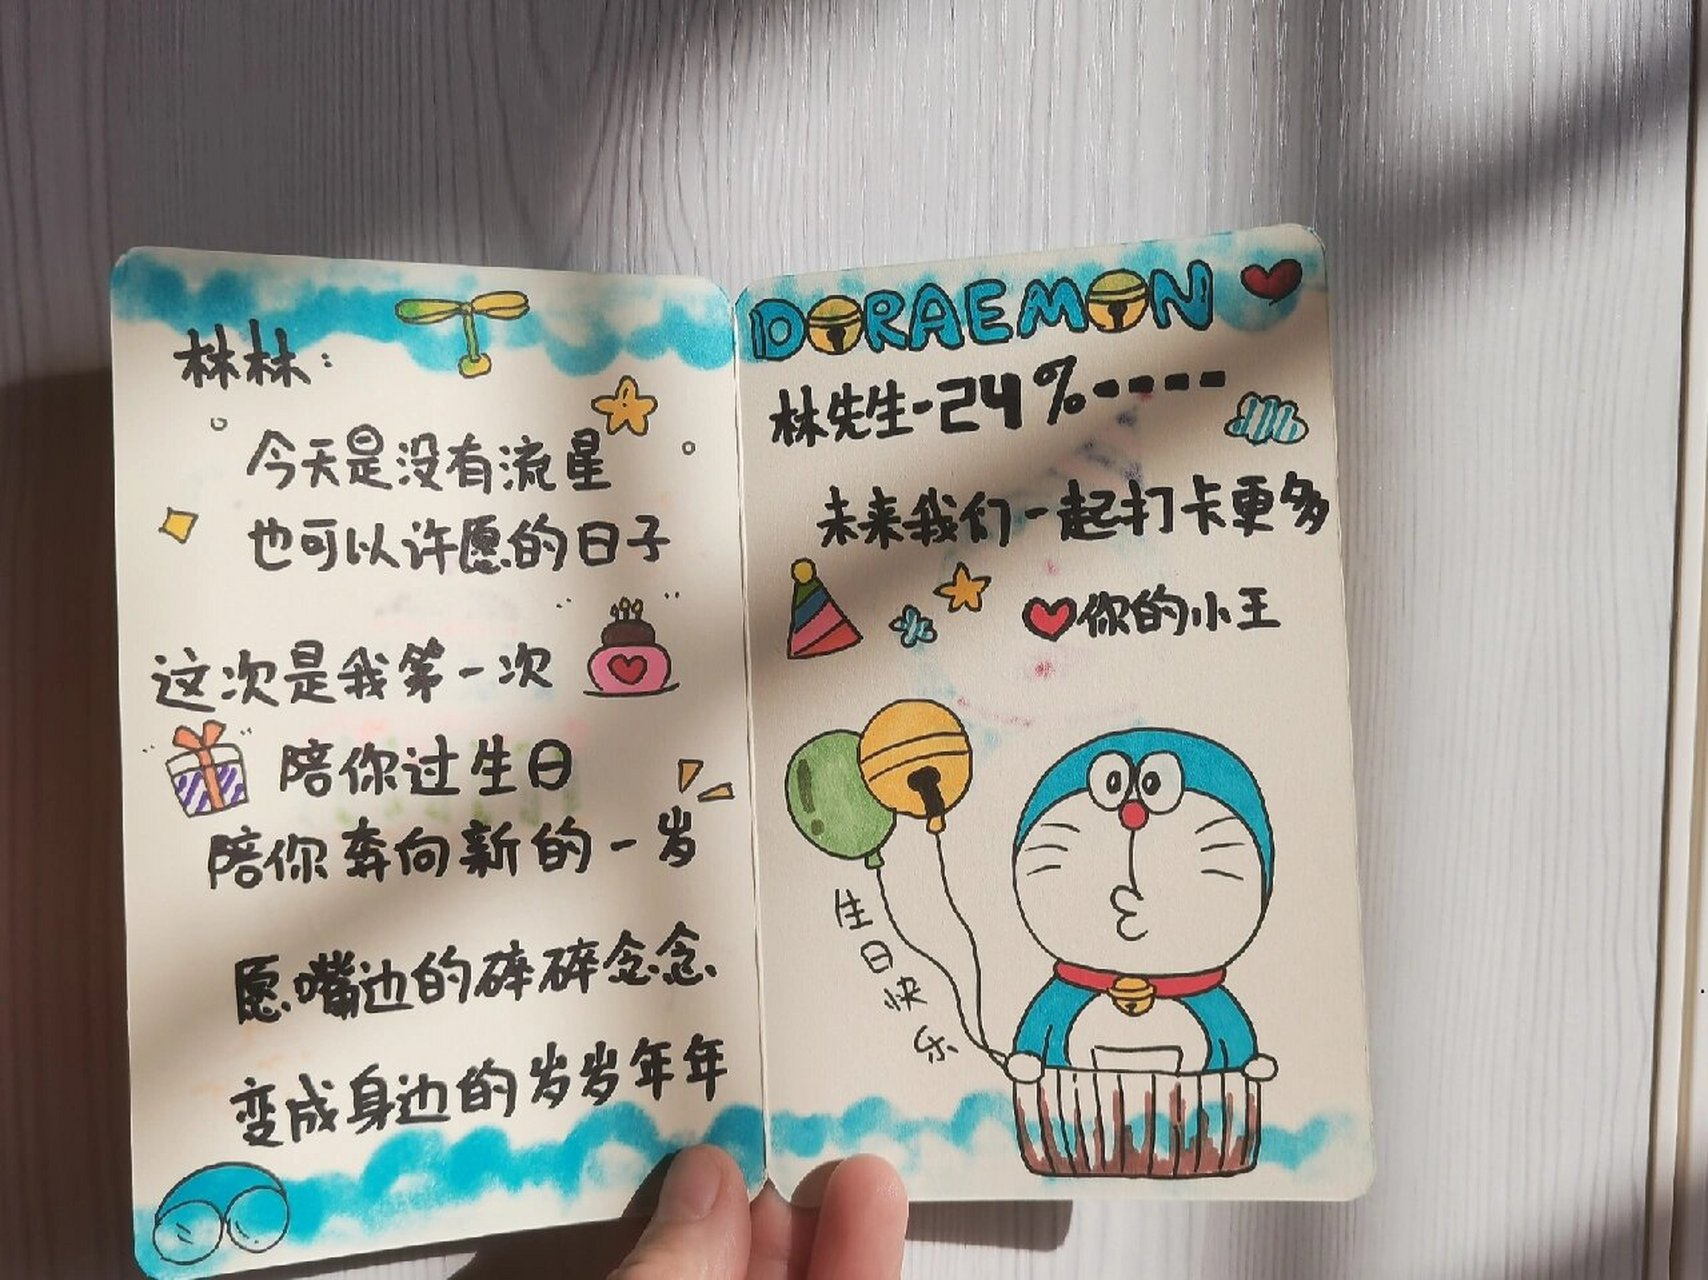 林林:
今天是没有流星
也可以许愿的日子
这次是我第一次
陪你过生日
陪你奔向新的一岁
愿嘴边的碎碎念念
变成身边的岁岁年年
DORAEMON
林先生-24%----
未来我们一起打卡更多
你的小王
生日快乐